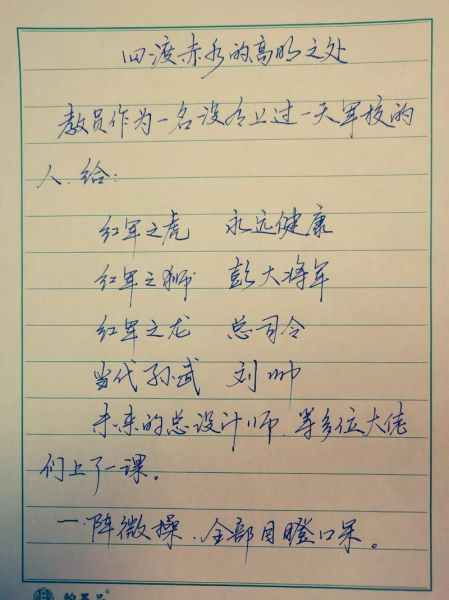 四渡赤水的高明之处
教员作为一名没有上过一天军校的
人.给:
红军之虎 永远健康
红军之狮 彭大将军
红军之龙 总司令
当代孙武 刘帅
未来的总设计师.等多位大佬
们上了一课。
一阵微操.全部目瞪口呆。